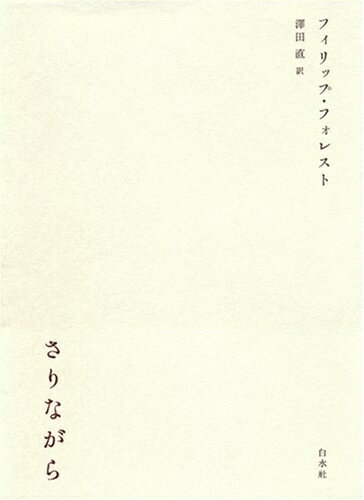 フィリップ・フォレスト
澤田 直 訳
さりながら
白水社